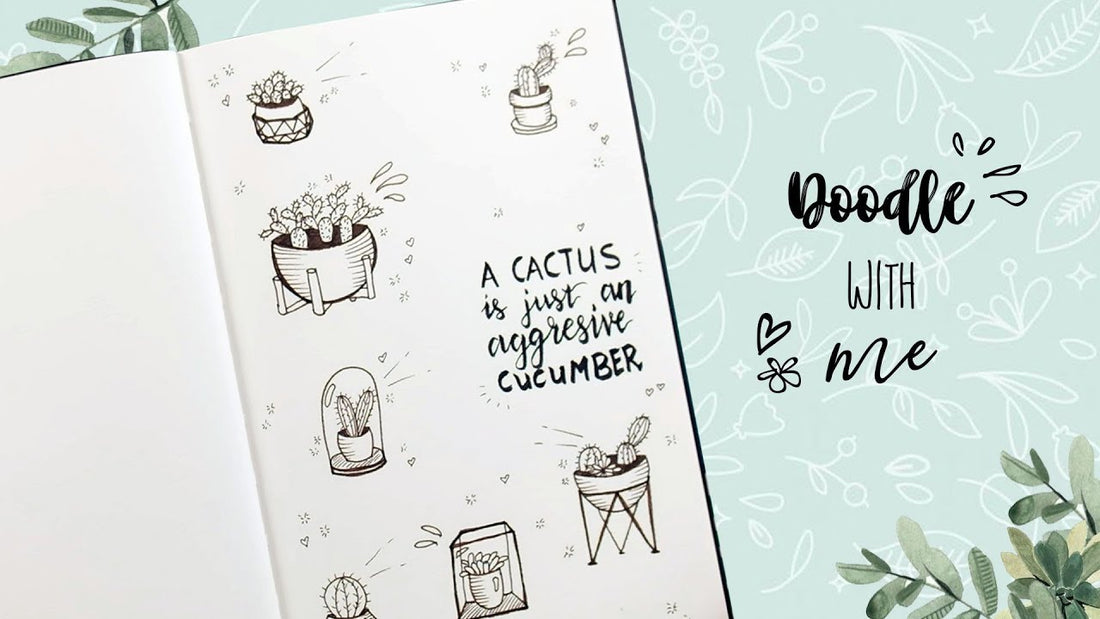 A CACTUS
is just an
aggresive
CUCUMBER
Doodle
WITH
me